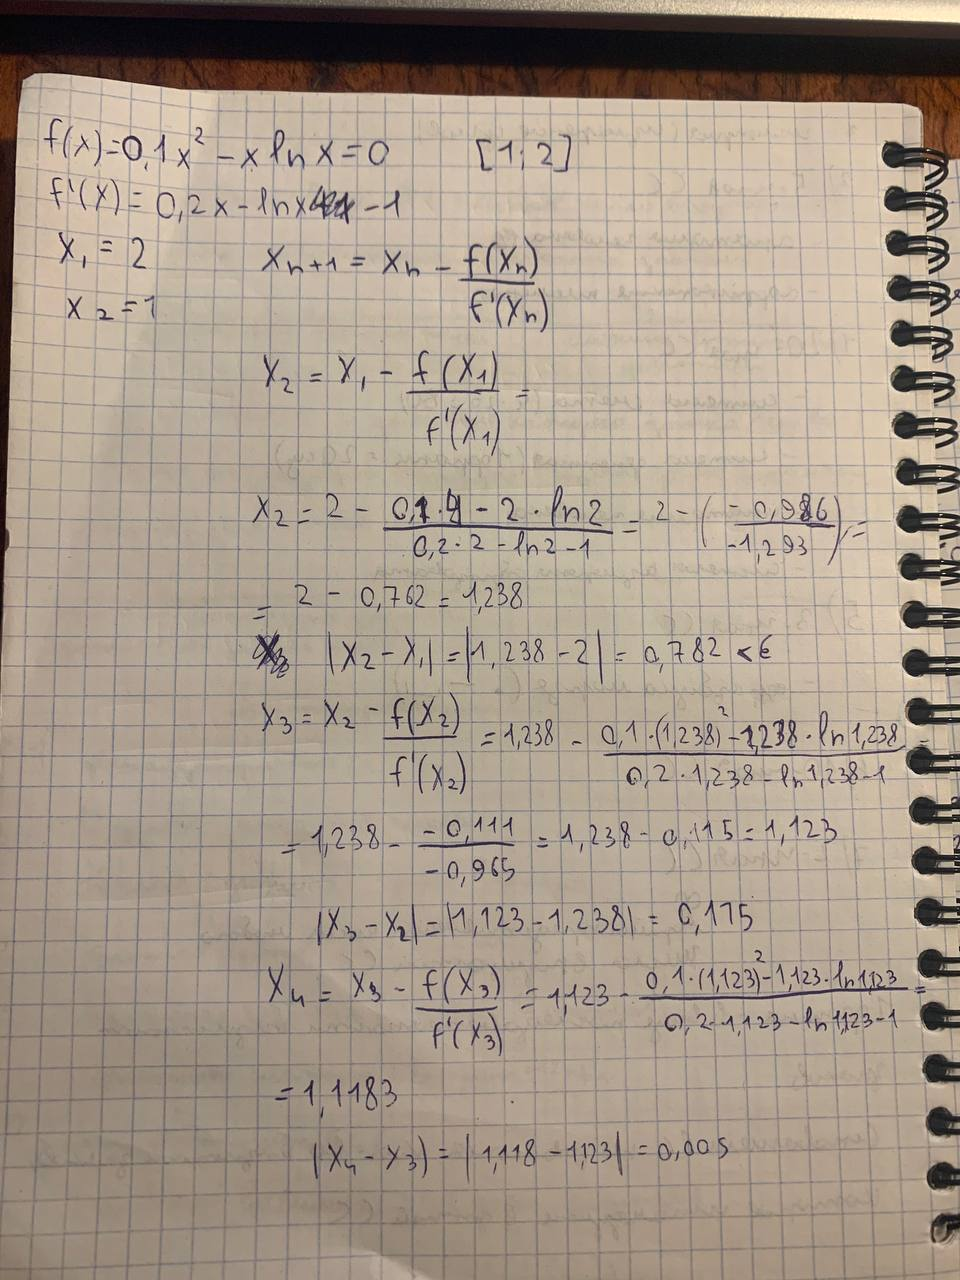 f(x)=0,1x² - x ln x = 0 [1;2]
f'(x) = 0,2x - lnx - 1
x₁ = 2 xₙ₊₁ = xₙ - f(xₙ)/f'(xₙ)
x₂ = 1
x₂ = x₁ - f(x₁)/f'(x₁) =
x₂ = 2 - (0,1·4 - 2·ln2)/(0,2·2 - ln2 - 1) = 2 - (-0,986/-1,293) =
= 2 - 0,762 = 1,238
|x₂ - x₁| = |1,238 - 2| = 0,782 < ε
x₃ = x₂ - f(x₂)/f'(x₂) = 1,238 - (0,1·(1,238)² - 1,238·ln1,238)/(0,2·1,238 - ln1,238 - 1) =
= 1,238 - (-0,111/-0,965) = 1,238 - 0,115 = 1,123
|x₃ - x₂| = |1,123 - 1,238| = 0,115
x₄ = x₃ - f(x₃)/f'(x₃) = 1,123 - (0,1·(1,123)² - 1,123·ln1,123)/(0,2·1,123 - ln1,123 - 1) =
= 1,1183
|x₄ - x₃) = |1,118 - 1,123| = 0,005